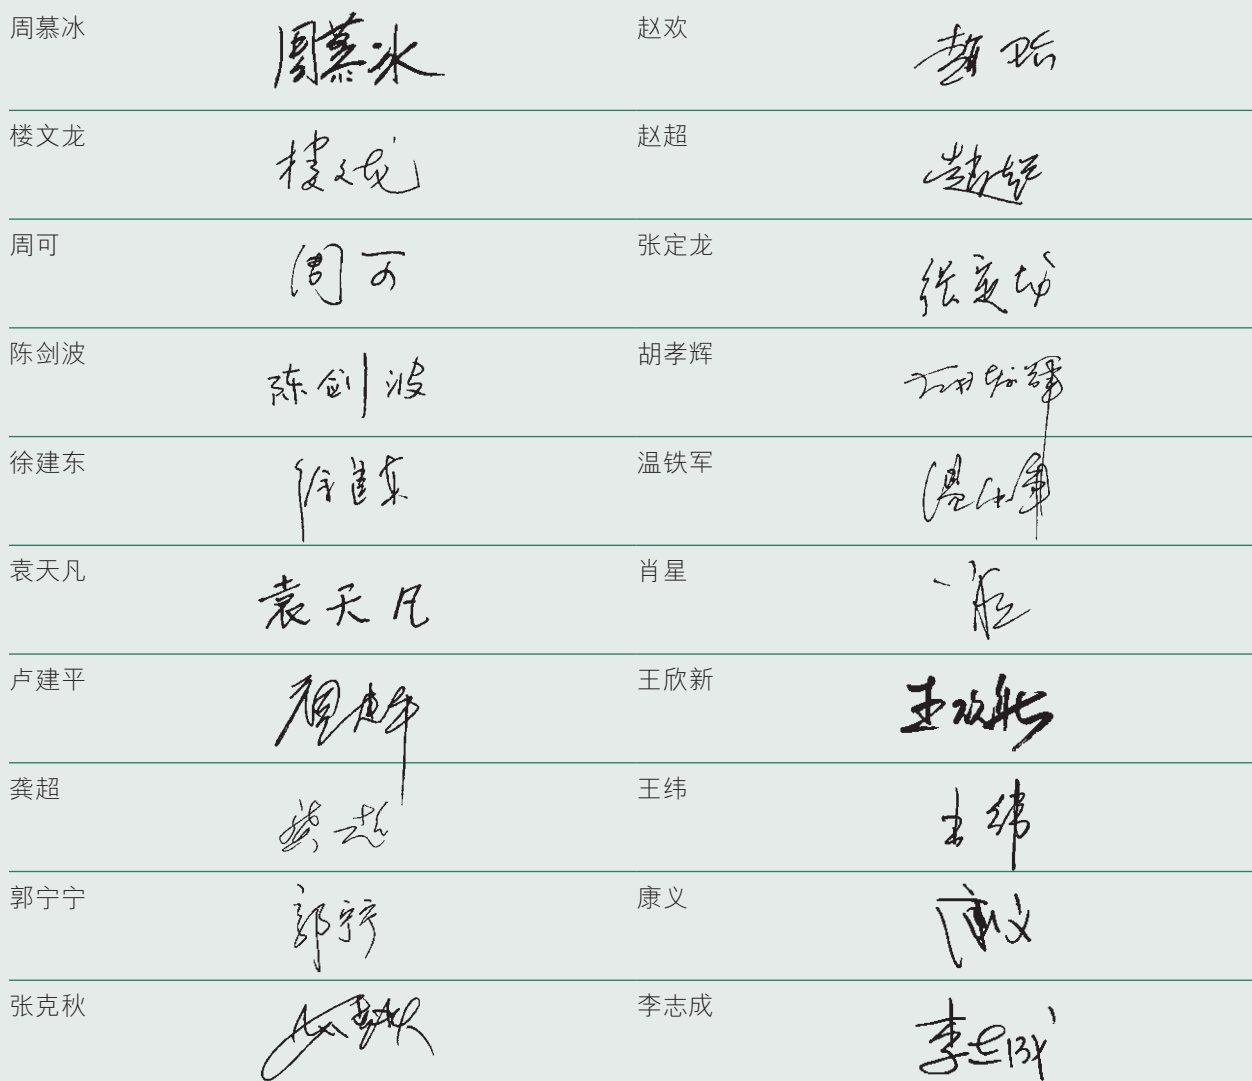 周慕冰 周慕冰 赵欢 赵欢
楼文龙 楼文龙 赵超 赵超
周可 周可 张定龙 张定龙
陈剑波 陈剑波 胡孝辉 胡孝辉
徐建东 徐建东 温铁军 温铁军
袁天凡 袁天凡 肖星 肖星
卢建平 卢建平 王欣新 王欣新
龚超 龚超 王纬 王纬
郭宁宁 郭宁宁 康义 康义
张克秋 张克秋 李志成 李志成